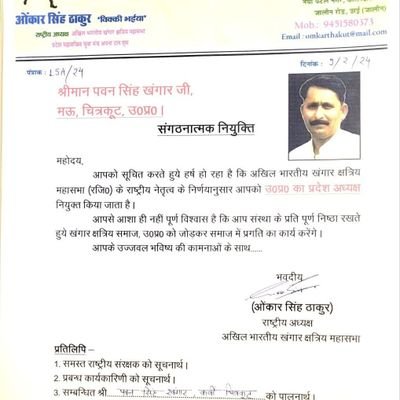 ओंकार सिंह ठाकुर "विक्की भईया"
राष्ट्रीय अध्यक्ष अखिल भारतीय खंगार क्षत्रिय महासभा
जालौन रोड, उरई (जालौन)
Mob: 9451580373
Email :omkarthakut@mail.com
पत्रांक : LSA/24
दिनांक : 5/2/24
श्रीमान पवन सिंह खंगार जी,
मऊ, चित्रकूट, उ0प्र0।
संगठनात्मक नियुक्ति
महोदय,
आपको सूचित करते हुये हर्ष हो रहा है कि अखिल भारतीय खंगार क्षत्रिय
महासभा (रजि0) के राष्ट्रीय नेतृत्व के निर्णयानुसार आपको उ0प्र0 का प्रदेश अध्यक्ष
नियुक्त किया जाता है।
आपसे आशा ही नहीं पूर्ण विश्वास है कि आप संस्था के प्रति पूर्ण निष्ठा रखते
हुये खंगार क्षत्रिय समाज, उ0प्र0 को जोड़कर समाज में प्रगति का कार्य करेंगे।
आपके उज्जवल भविष्य की कामनाओं के साथ......
भवदीय
(ओंकार सिंह ठाकुर)
राष्ट्रीय अध्यक्ष
अखिल भारतीय खंगार क्षत्रिय महासभा
प्रतिलिपि –
1. समस्त राष्ट्रीय संरक्षक को सूचनार्थ।
2. प्रबन्ध कार्यकारिणी को सूचनार्थ।
3. सम्बन्धित श्री पवन सिंह खंगार, चित्रकूट को पालनार्थ।